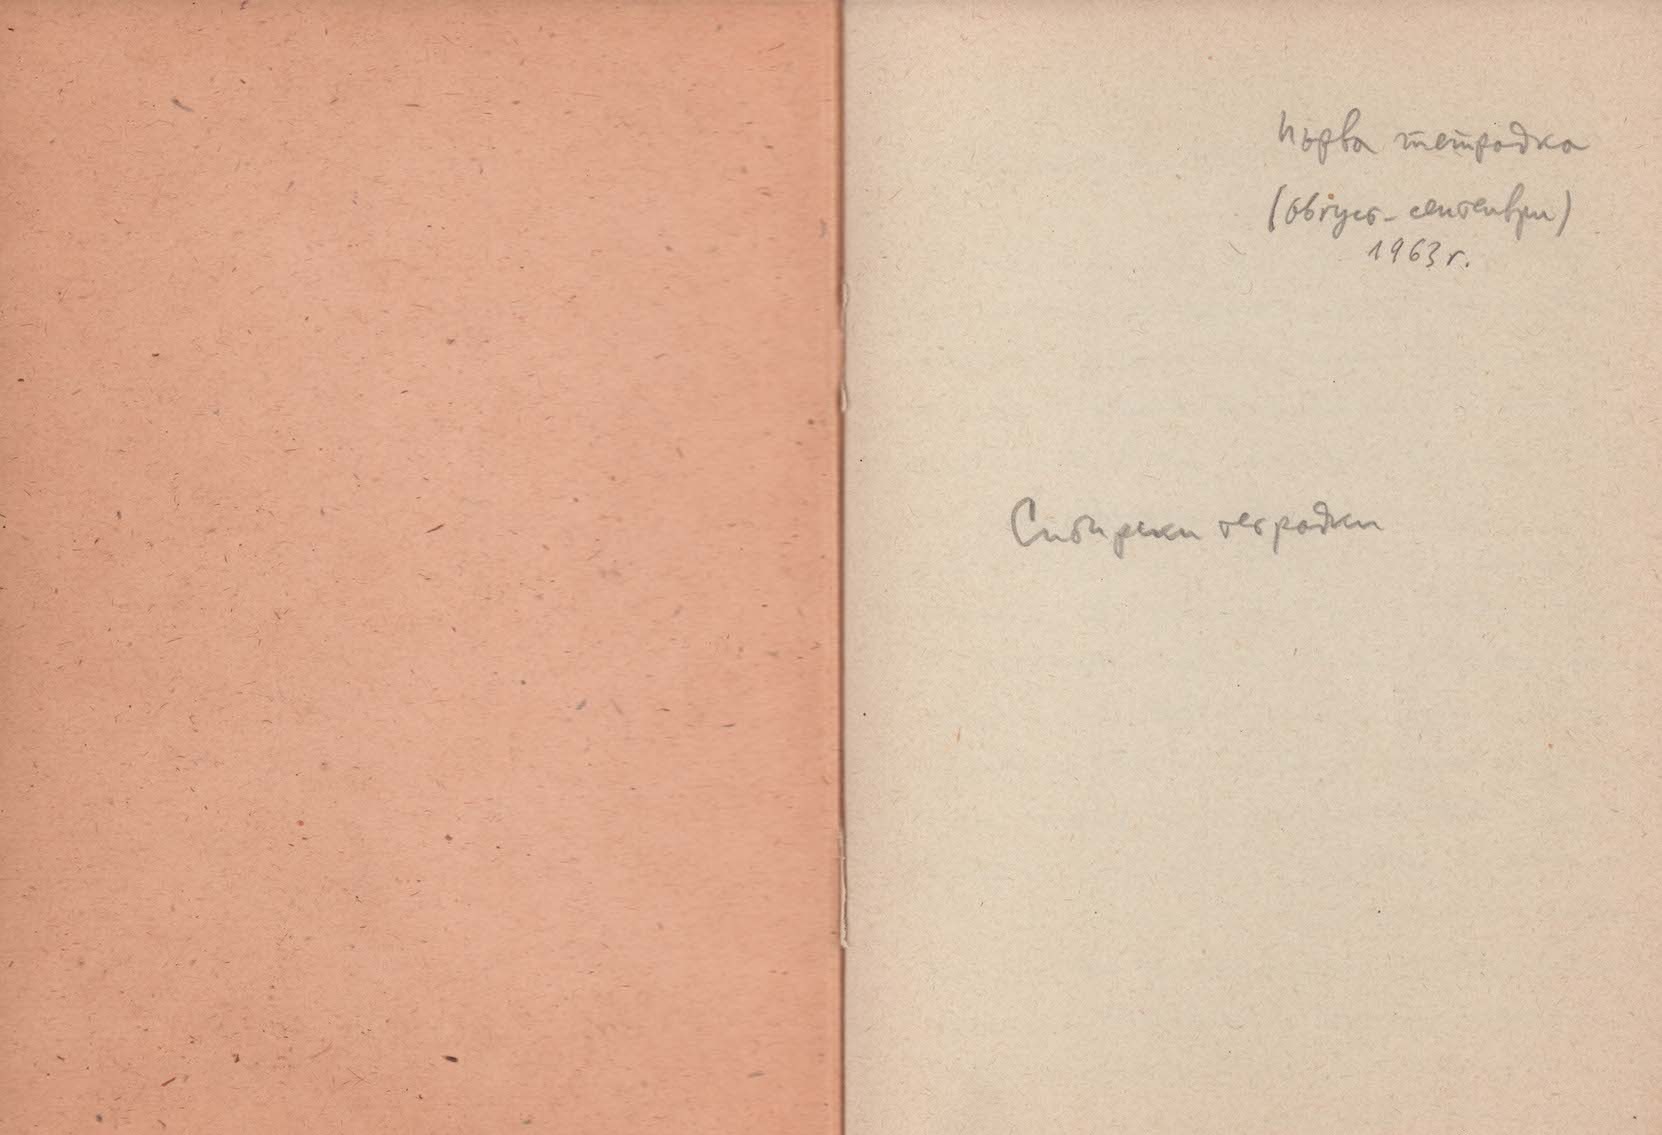 Първа тетрадка
(август - септември)
1963 г.
Сибирски тетрадки